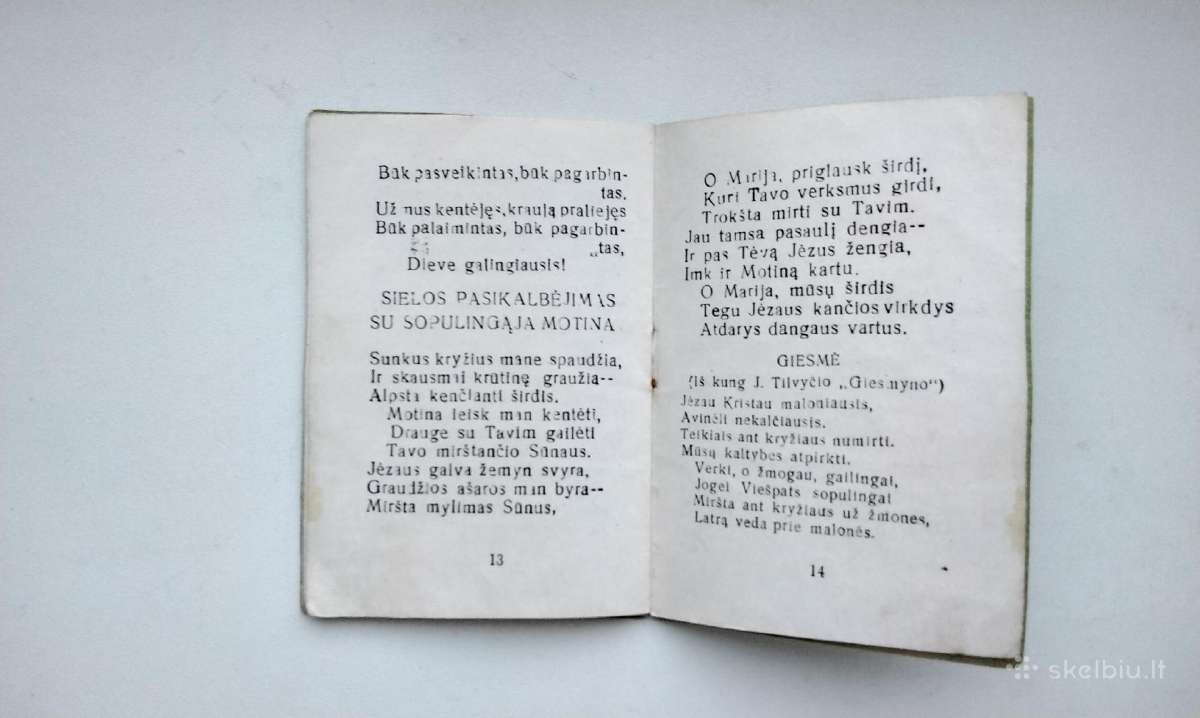 Būk pasveikintas, būk pagarbin-
tas.
Už mus kentėjęs, kraują praliejęs
Būk palaimintas, būk pagarbin-
„tas,
Dieve galingiausis!
SIELOS PASIKALBĖJIMAS
SU SOPULINGĄJA MOTINA
Sunkus kryžius mane spaudžia,
Ir skausmai krūtinę graužia--
Alpsta kenčianti širdis.
Motina leisk man kentėti,
Drauge su Tavim gailėti
Tavo mirštančio Sūnaus.
Jėzaus galva žemyn svyra,
Graudžios ašaros man byra--
Miršta mylimas Sūnus,
13
O Marija, priglausk širdį,
Kuri Tavo verksmus girdi,
Trokšta mirti su Tavim.
Jau tamsa pasaulį dengia--
Ir pas Tėvą Jėzus žengia,
Imk ir Motiną kartu.
O Marija, mūsų širdis
Tegu Jėzaus kančios virkdys
Atdarys dangaus vartus.
GIESMĖ
(iš kung J. Tilvyčio „Giesmyno“)
Jėzau Kristau maloniausis,
Avinėli nekalčiausis.
Teikiais ant kryžiaus numirti.
Mūsų kaltybes atpirkti.
Verki, o žmogau, gailingai,
Jogei Viešpats sopulingai
Miršta ant kryžiaus už žmones,
Latrą veda prie malonės.
14
skelbiu.lt